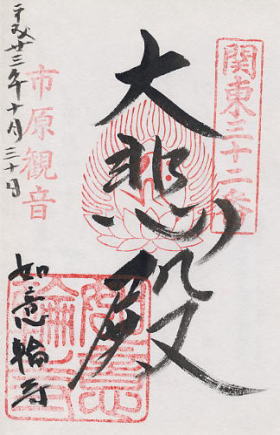 関東三十二番
大悲殿
市原観音
平成廿三年十月三十日
如意輪寺